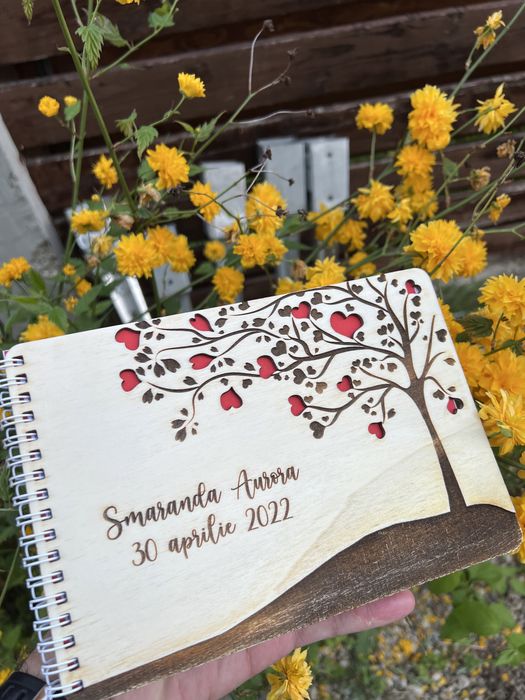 Smaranda Aurora
30 aprilie 2022